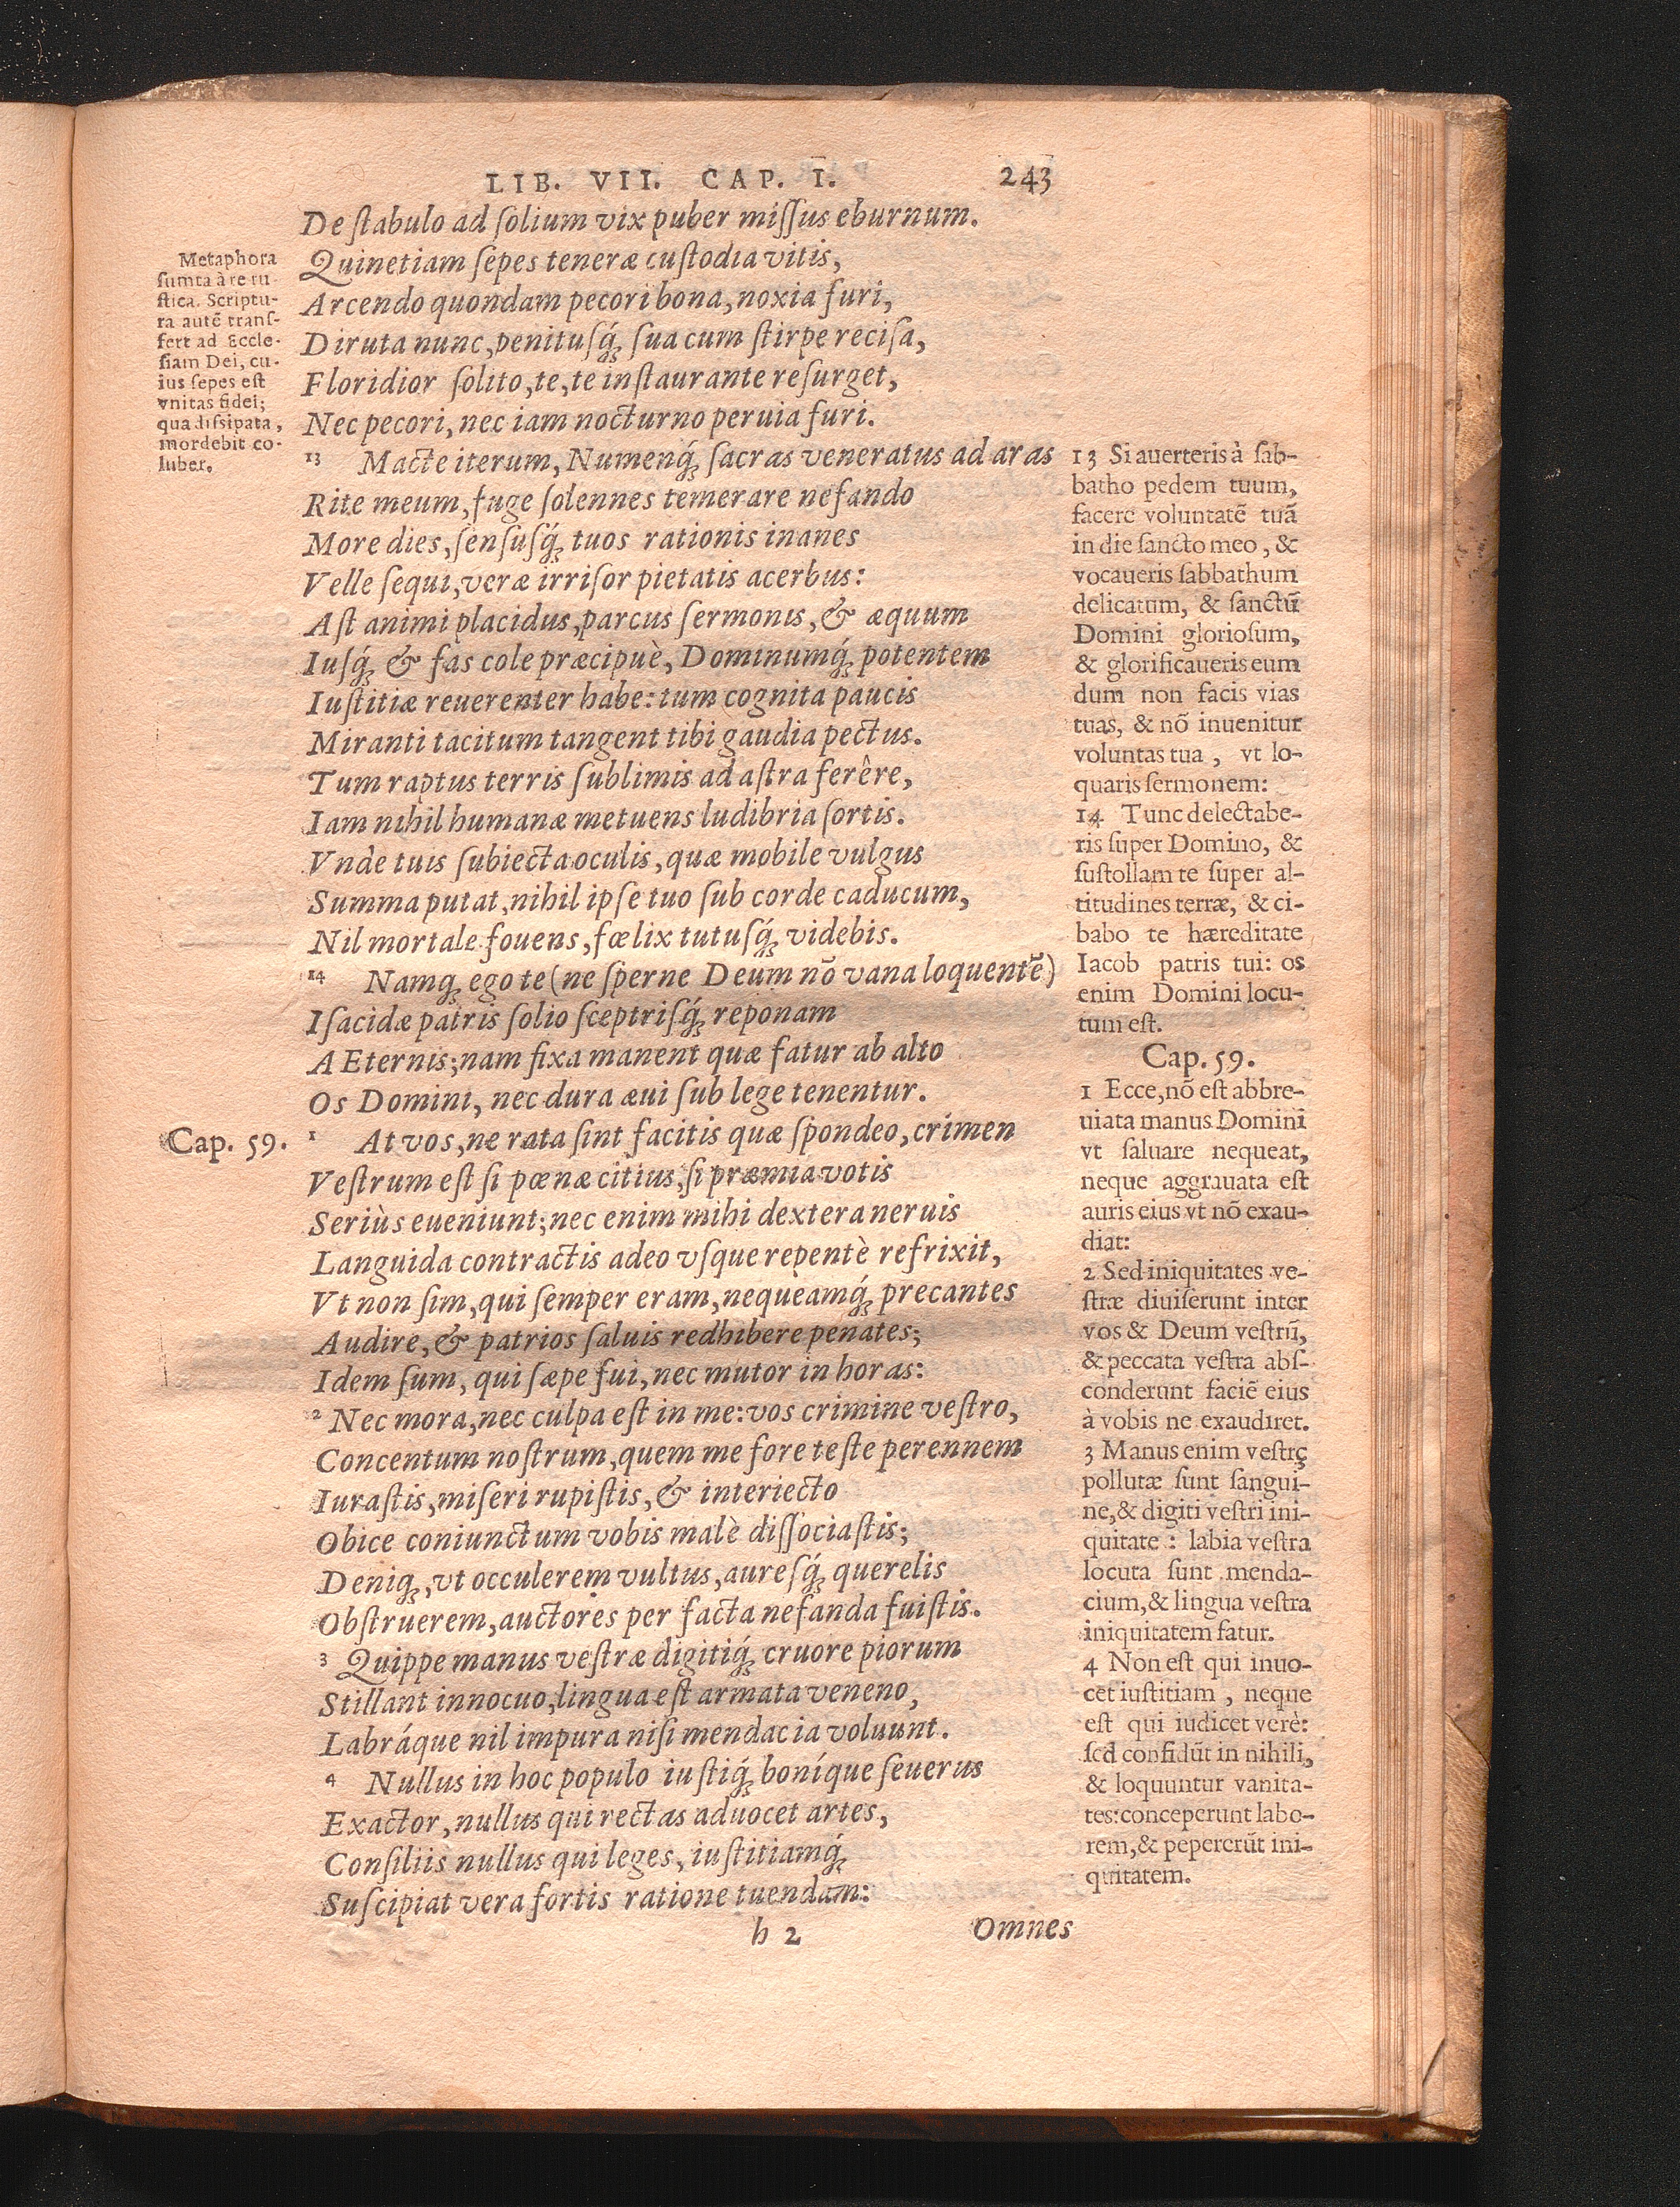 LIB. VII. CAP. I. 243
De ſtabulo ad ſolium vix puber miſſus eburnum.
Quinetiam ſepes teneræ cuſtodia vitis,
Arcendo quondam pecori bona, noxia furi,
Diruta nunc, penituſq́; ſua cum ſtirpe reciſa,
Floridior ſolito, te, te inſtaurante reſurget,
Nec pecori, nec iam nocturno peruia furi.
13 Macte iterum, Numenq́; ſacras veneratus ad aras
Rite meum, fuge ſolennes temerare nefando
More dies, ſenſuſq́; tuos rationis inanes
Velle ſequi, veræ irriſor pietatis acerbus:
Aſt animi placidus, parcus ſermonis, & æquum
Iuſq́; & fas cole præcipuè, Dominumq́; potentem
Iuſtitiæ reuerenter habe: tum cognita paucis
Miranti tacitum tangent tibi gaudia pectus.
Tum raptus terris ſublimis ad aſtra ferêre,
Iam nihil humanæ metuens ludibria ſortis.
Vnde tuis ſubiecta oculis, quæ mobile vulgus
Summa putat, nihil ipſe tuo ſub corde caducum,
Nil mortale fouens, fœlix tutuſq́; videbis.
14 Namq; ego te (ne ſperne Deum nō vana loquentē)
Iſacidæ patris ſolio ſceptriſq́; reponam
AEternis; nam fixa manent quæ fatur ab alto
Os Domini, nec dura æui ſub lege tenentur.
Cap. 59. 1 At vos, ne rata ſint facitis quæ ſpondeo, crimen
Veſtrum eſt ſi pœnæ citius, ſi præmia votis
Seriùs eueniunt; nec enim mihi dextera neruis
Languida contractis adeo vſque repentè refrixit,
Vt non ſim, qui ſemper eram, nequeamq́; precantes
Audire, & patrios ſaluis redhibere penates;
Idem ſum, qui ſæpe fui, nec mutor in horas:
2 Nec mora, nec culpa eſt in me: vos crimine veſtro,
Concentum noſtrum, quem me fore teſte perennem
Iuraſtis, miſeri rupiſtis, & interiecto
Obice coniunctum vobis malè diſſociaſtis;
Deniq;, vt occulerem vultus, aureſq́; querelis
Obſtruerem, auctores per facta nefanda fuiſtis.
3 Quippe manus veſtræ digitiq́; cruore piorum
Stillant innocuo, lingua eſt armata veneno,
Labráque nil impura niſi mendacia voluunt.
4 Nullus in hoc populo iuſtiq́; boníque ſeuerus
Exactor, nullus qui rectas aduocet artes,
Conſiliis nullus qui leges, iuſtitiamq́;
Suſcipiat vera fortis ratione tuendam:
h 2 Omnes
Metaphora
ſumta à re ru-
ſtica. Scriptu-
ra autē tranſ-
fert ad Eccle-
ſiam Dei, cu-
ius ſepes eſt
vnitas fidei;
qua diſsipata,
mordebit co-
luber.
13 Si auerteris à ſab-
batho pedem tuum,
facere voluntatē tuā
in die ſancto meo, &
vocaueris ſabbathum
delicatum, & ſanctū
Domini glorioſum,
& glorificaueris eum
dum non facis vias
tuas, & nō inuenitur
voluntas tua, vt lo-
quaris ſermonem:
14 Tunc delectabe-
ris ſuper Domino, &
ſuſtollam te ſuper al-
titudines terræ, & ci-
babo te hæreditate
Iacob patris tui: os
enim Domini locu-
tum eſt.
Cap. 59.
1 Ecce, nō eſt abbre-
uiata manus Domini
vt ſaluare nequeat,
neque aggrauata eſt
auris eius vt nō exau-
diat:
2 Sed iniquitates ve-
ſtræ diuiſerunt inter
vos & Deum veſtrū,
& peccata veſtra abſ-
conderunt faciē eius
à vobis ne exaudiret.
3 Manus enim veſtrę
pollutæ ſunt ſangui-
ne, & digiti veſtri ini-
quitate: labia veſtra
locuta ſunt menda-
cium, & lingua veſtra
iniquitatem fatur.
4 Non eſt qui inuo-
cet iuſtitiam, neque
eſt qui iudicet verè:
ſed confidūt in nihili,
& loquuntur vanita-
tes: conceperunt labo-
rem, & pepererūt ini-
quitatem.